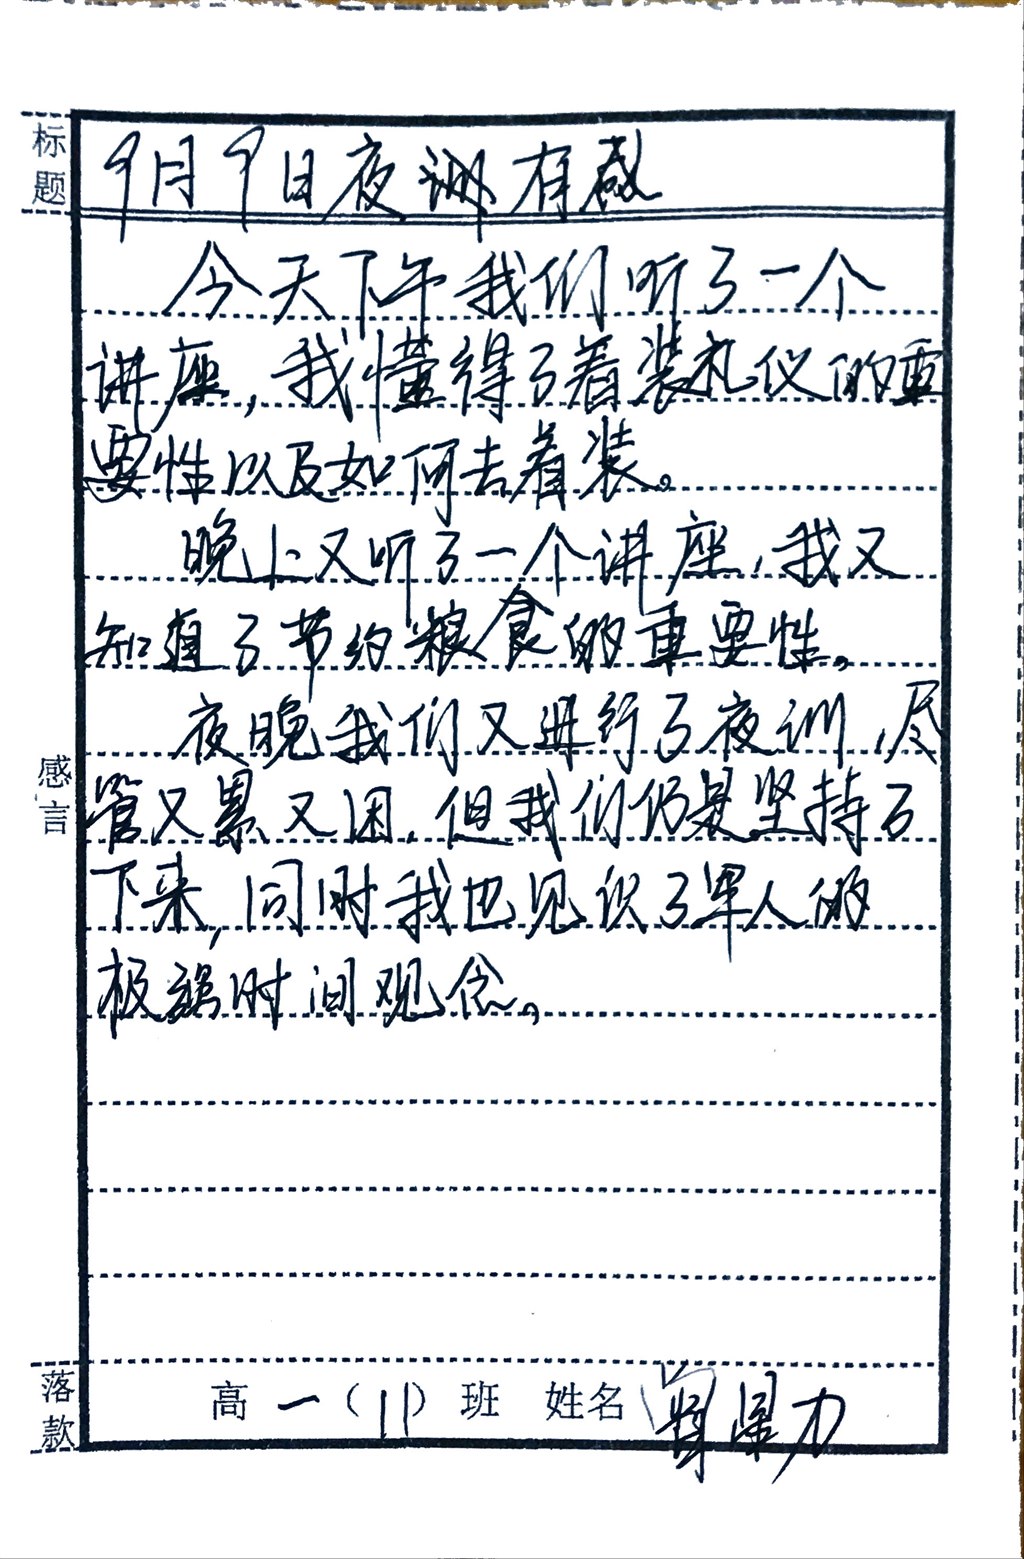 标题
9月9日夜训有感
今天下午我们听了一个
讲座,我懂得了着装礼仪的重
要性以及如何去着装。
晚上又听了一个讲座,我又
知道了节约粮食的重要性。
夜晚我们又进行了夜训,尽
管又累又困,但我们仍是坚持了
下来,同时我也见识了军人的
极强时间观念。
感言
落款
高一(11)班 姓名 力